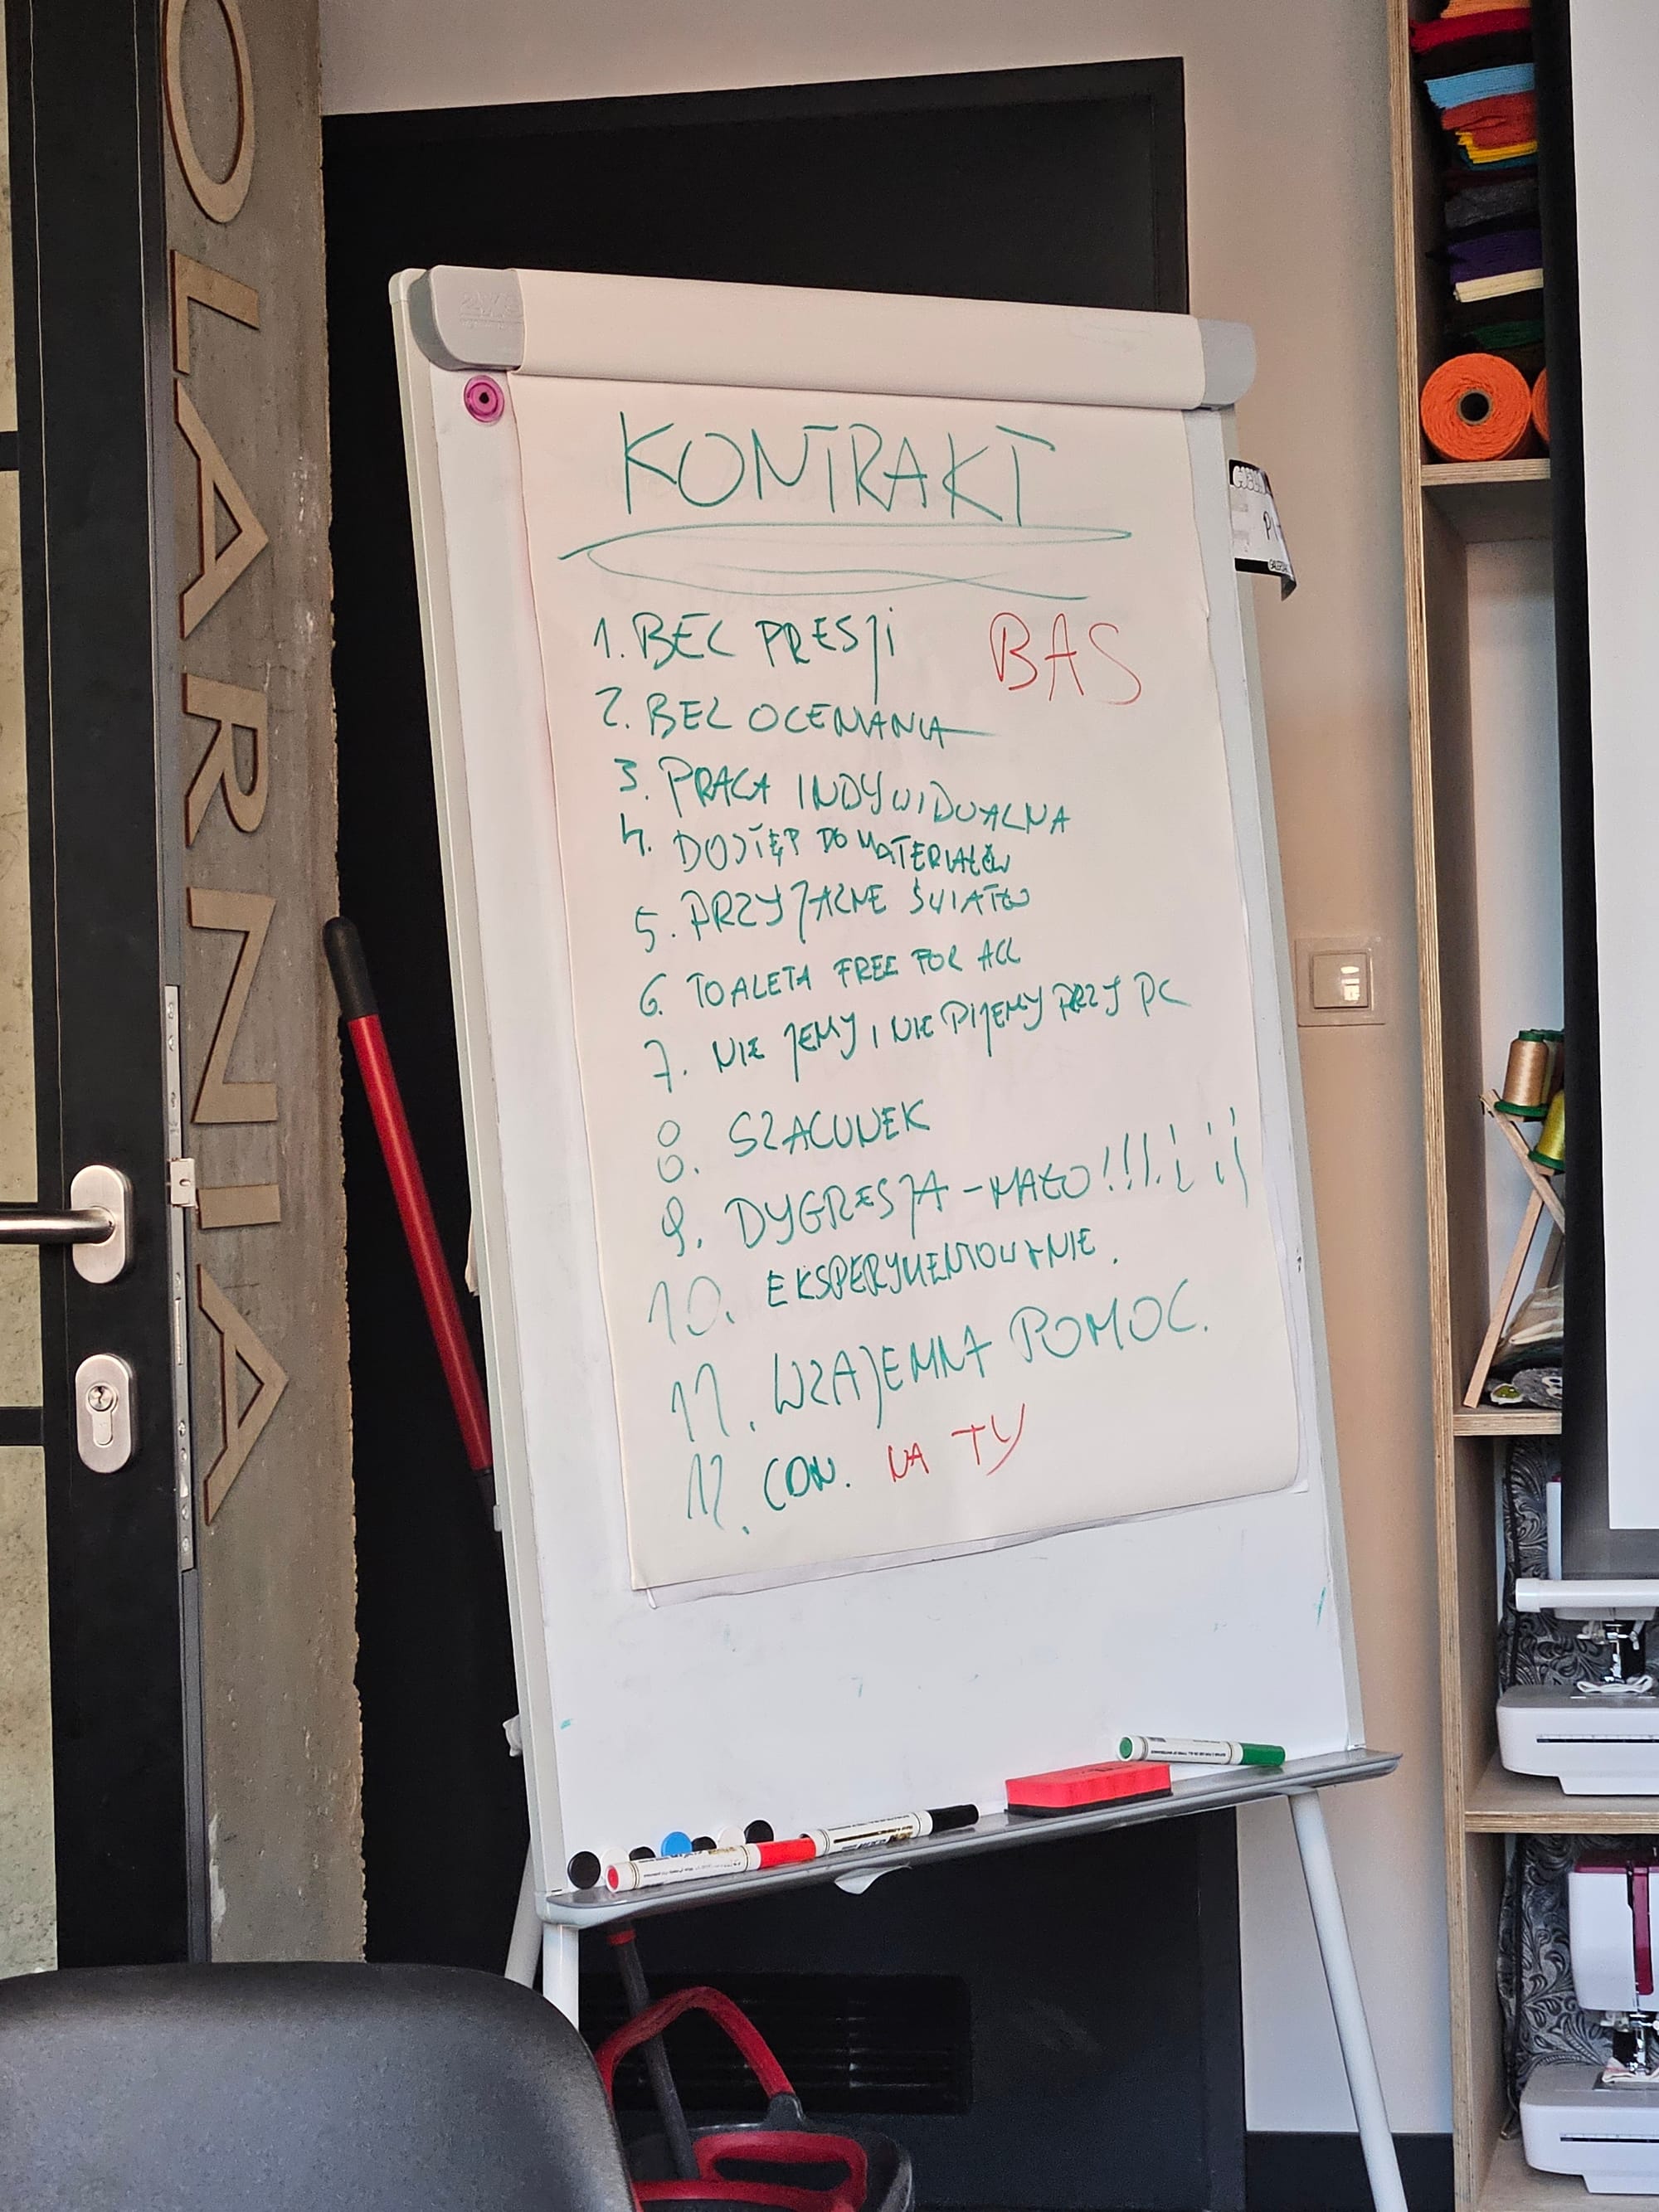 OLARNIA
KONTRAKT
1. BEZ PRESJI
BAS
2. BEZ OCENIANIA
3. PRACA INDYWIDUALNA
4. DOSTĘP DO MATERIAŁÓW
5. PRZYJAZNE ŚWIATŁO
6. TOALETA FREE FOR ALL
7. NIE JEMY I NIE PIJEMY PRZY PC
8. SZACUNEK
9. DYGRESJA - MAŁO!!!
10. EKSPERYMENTOWANIE.
11. WZAJEMNA POMOC.
12. CDN. NA TY